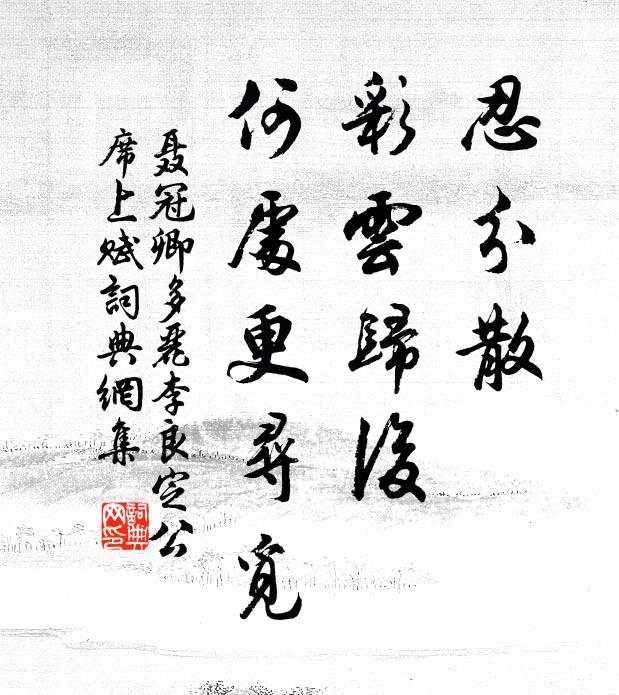 忍分散
彩雲歸後
何處更尋覓
聶冠卿多麗李良定公
席上賦詞典網集
詞典网印